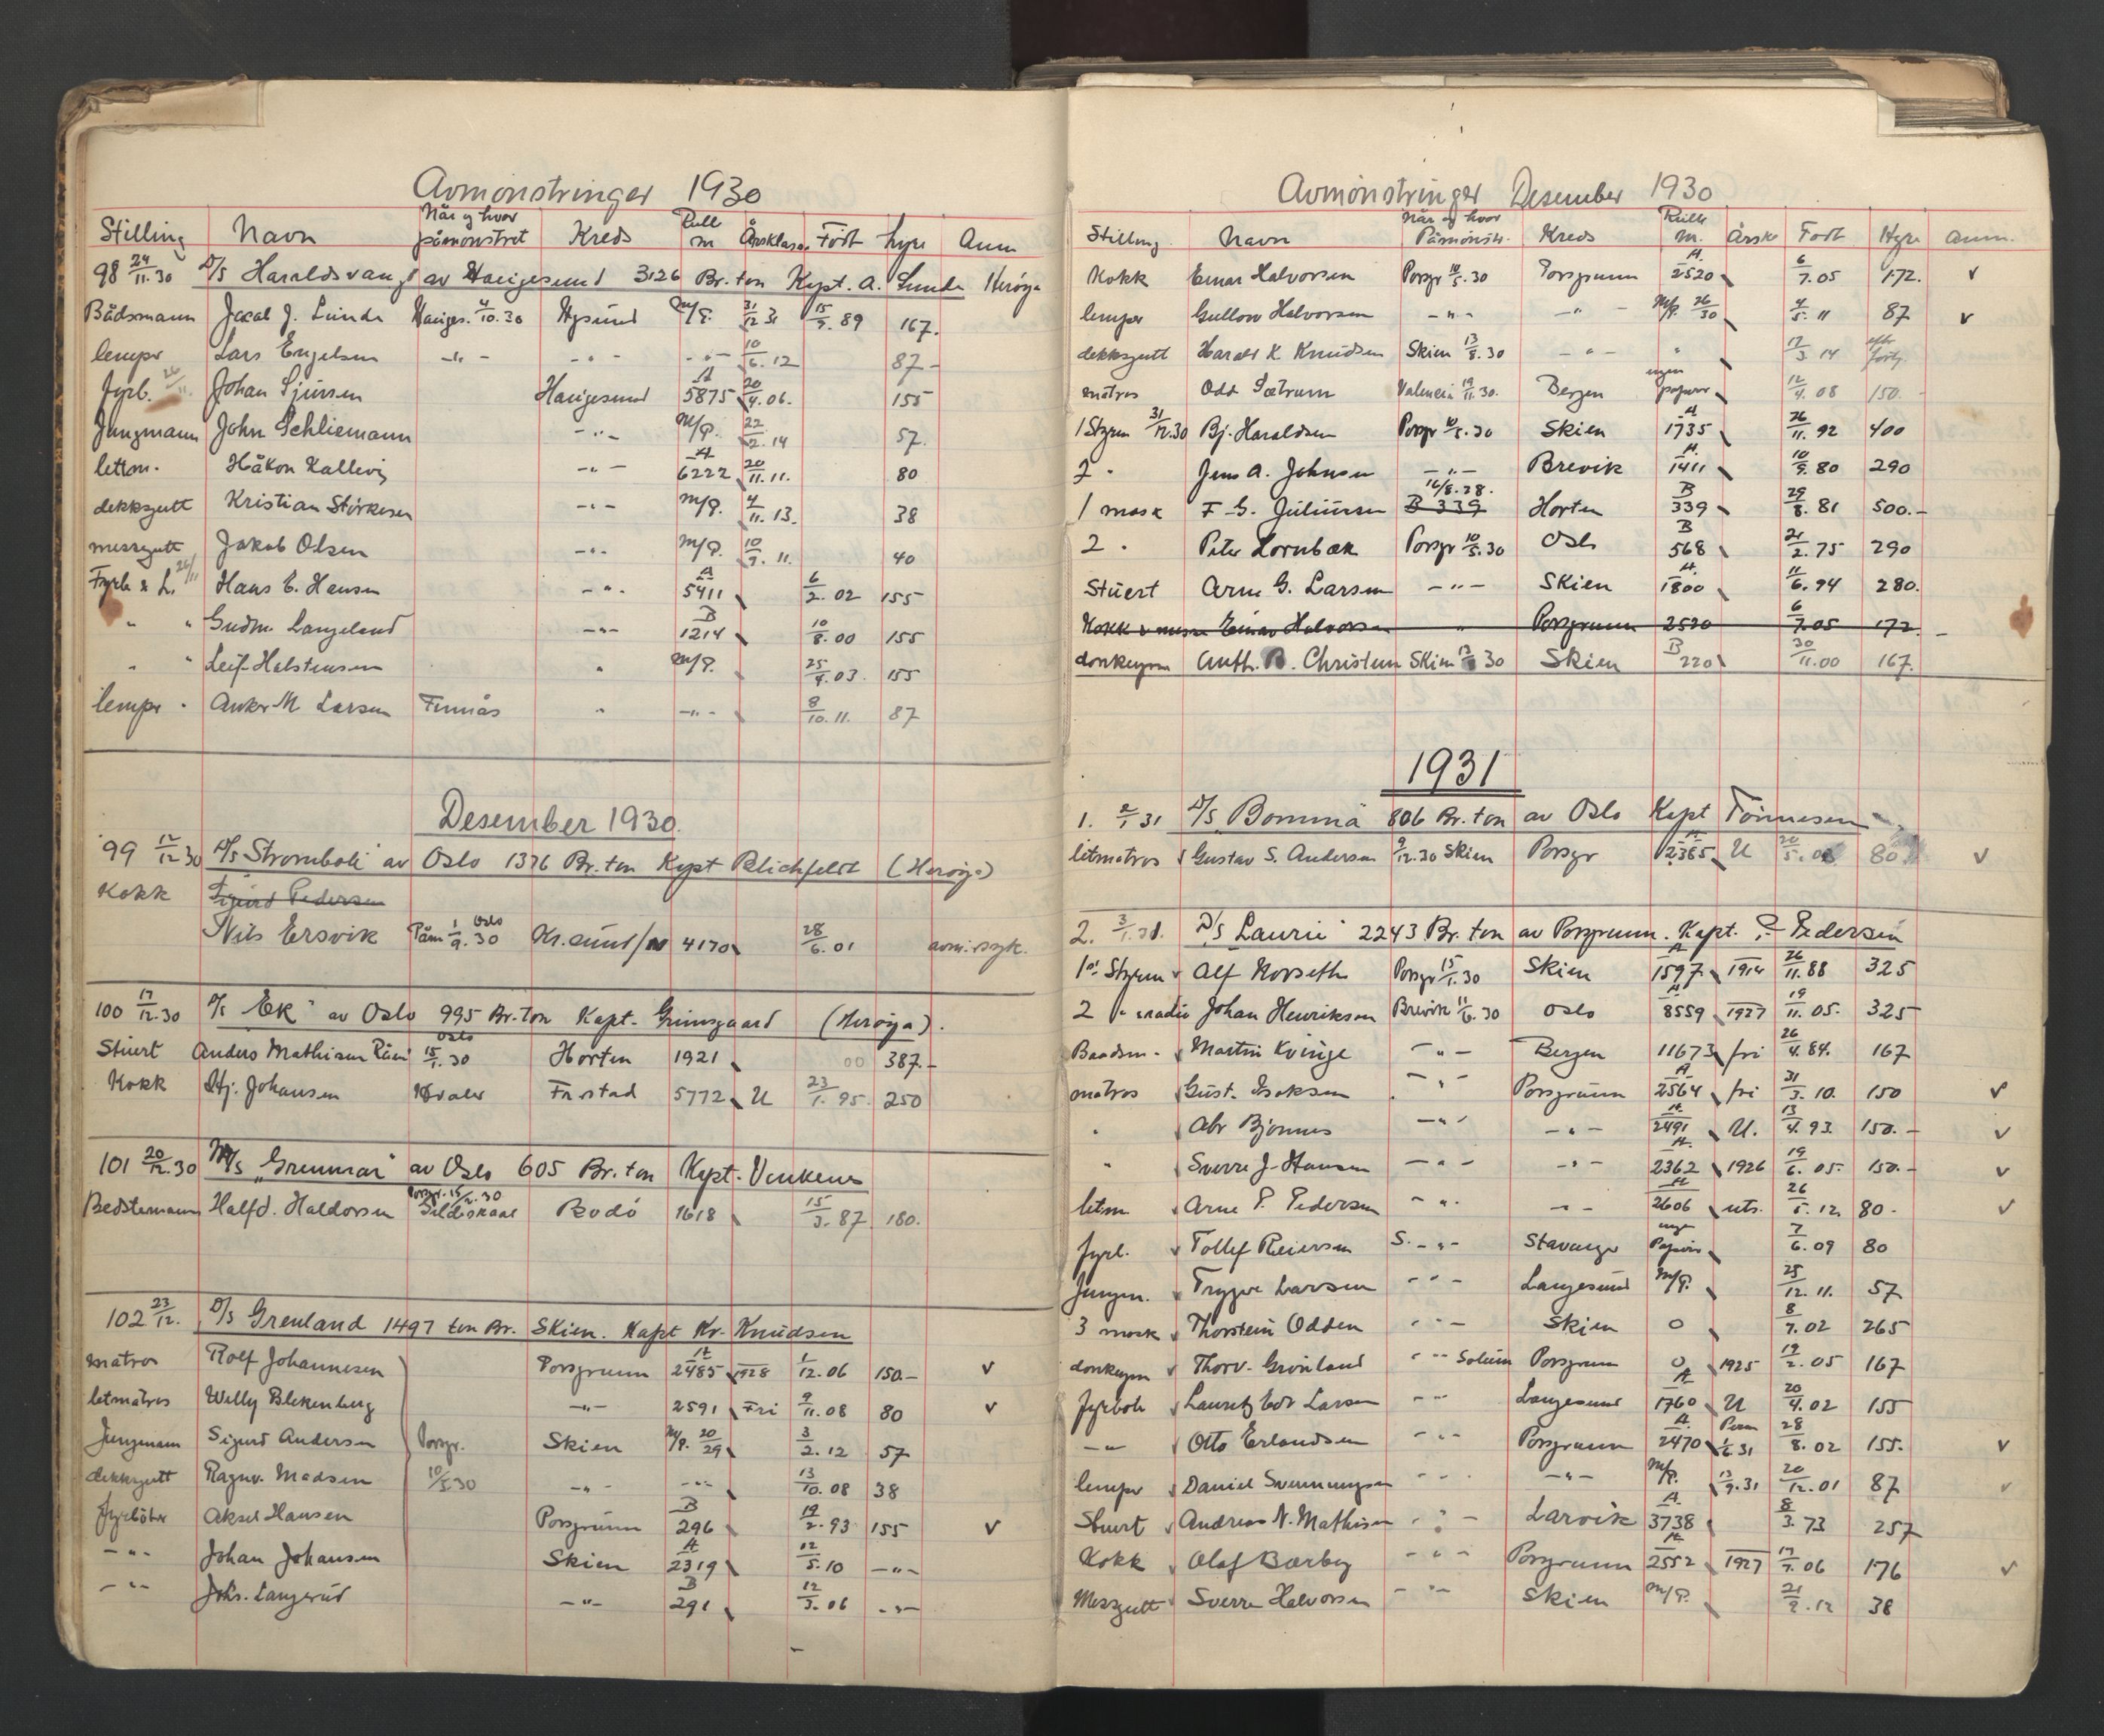 Avmönstringer 1930
Stilling Navn Når og hvor påmönstret Kreds Rull nr Årsklasse Födt hyre Anm
98 24/11.30 D/S Haraldsvang av Haugesund 3126 Br. ton Kapt. A. Lunde Heröya
Bådsmann Jacob J. Lunde Hauges. 4/10.30 Hgsund m/P. 31/12 31 15/9. 89 167.
lemper Lars Engelsen -"- -"- -"- 10/6.12 87-
fyrb. 26/11. Johan Sjursen Haugesund A 5875 20/4.06. 155
Jungmann John Schliemann -"- m/P. 22/2.14 57.
lettm. Håkon Kallevig -"- A 6222 20/11.11. 80
dekksgutt Kristian Störkesen -"- m/P. 4/11.13. 38
messegutt Jakob Olsen -"- m/P. 10/9.11. 40
Fyrb & L. 26/11 Hans E. Hansen -"- A 5411 6/2.02 155
" " Gudm. Langeland -"- B 1214 10/8.00 155
" " Leif Halstensen " m/P. 25/4.03. 155
lemper " Anker M Larsen Finnås " -"- 8/10.11. 87
Desember 1930.
99 12/12 30 D/S "Stromboli" av Oslo 1376 Br. ton Kapt Blichfeldt (Heröya)
Kokk Sigurd Pedersen
Nils Ersvik Påm 1/9.30 Oslo Kr.sund/N 4170 28/6.01 avm. syk.
100 17/12.30 D/S "Ek" av Oslo 995 Br. Ton Kapt. Grimsgaard (Heröya).
Stuert Anders Mathisen Påm Oslo 15/1.30 Horten 1921 00 387.-
Kokk Hj. Johansen Hvaler Fr.stad 5772 U 23/1.95. 250
101 20/12.30 M/S "Grenmar" av Oslo 605 Br. ton Kapt. Venkenes
Bedstemann Halfd. Haldorsen Porsgr. 15/2.30 Gildeskaal Bodö 1618 15/3.87. 180.
102 23/12. D/S Grenland 1497 ton Br. Skien. Kapt Kr. Knudsen
matros Rolf Johannesen Porsgrunn A 2485 1928 1/12.06 150.- v
letmatros Willy Blekenberg -"- 2591 Fri 9/11.08 80 v
Jungmann Sigurd Andersen Porsgr. Skien m/P. 20/29 3/2.12 57
dekksgutt Ragnv. Madsen 10/5.30 -"- -"- 13/10.08 38
Fyrböter Aksel Hansen Porsgrunn B 296 19/2.93 155 v
-"- Johan Johansen Skien A 2319 12/5.10 -"-
-"- Johs. Langerud -"- B 291 12/3.06 -"-
Avmönstringer Desember 1930
Stilling Navn Når og hvor Påmönstr. Kreds Rulle nr. Årskl Födt Hyre Anm.
Kokk Einar Halvorsen Porsgr 10/5.30 Porsgrunn A. 2520 6/7.05 172. v
lemper Gullow Halvorsen -"- -"- m/P. 26/30 4/5.11 87 v
dekksgutt Harald K Knudsen Skien 13/8.30 -"- " 17/3 14 eftr fortj.
matros Odd Sætrum Valencia 19/11.30. Bergen ingen papirer 12/4.08 150.-
1 Styrm 31/12.30 Bj. Haraldsen Porsgr 10/5.30 Skien A 1735 26/11.92 400
2 " Jens A. Johnsen -"- Brevik A. 1411 10/9.80 290
1 mask F. G. Juliussen 16/8.28. B 339 Horten B 339 29/8.81 500.-
2 " Peter Hornbæk Porsgr 10/5.30 Oslo B 568 21/2.75 290
Stuert Arne G. Larsen -"- Skien A. 1800 11/6.94 280.
Kokk Einar Halvorsen " Porsgrunn 2520 6/7.05 172.
donkeym Anth. B. Christen Skien 13/8 30 Skien B 220 30/11.00 167.
1931
1. 2/1 31 D/S "Bomma" 806 Br. ton av Oslo Kapt Tönnesen
letmatros Gustav S. Andersen 9/12.30 Skien Porsgr A 2385 U 20/5.08 80 v
2. 3/1.31. D/S "Laurie" 2243 Br. ton av Porsgrunn. Kapt. P. Pedersen
1st Styrm Alf Norseth Porsgr 15/1.30 Skien A 1597 1914 26/11.88 325
2 " & radio Johan Henriksen Brevik 11/6.30 Oslo A 8559 1927 19/11.05. 325
Baadsm. Martin Kvinge -"- Bergen 11673 fri 26/4.84. 167
matros Gust. Isaksen -"- Porsgrunn A 2564 fri 31/3.10. 150 v
" Abr Bjönnes -"- -"- A. 2491 U. 13/4.93. 150.- v
" Sverre J. Hansen -"- -"- A. 2362 1926 19/6.05. 150.- v
letm Arne P. Pedersen -"- -"- A 2606 uts. 26/5.12. 80- v
fyrb. Tollef Reiersen S. -"- Stavanger ingen Papirer 7/6.09 80
Jungm. Trygve Larsen -"- Langesund m/P. 25/12.11. 57
3 mask Thorstein Odden -"- Skien O 8/7.02 265
donkeym Thorv. Grönland -"- Solum Porsgrunn O 1925 19/2.05 167
fyrböt Lauritz Edv Larsen -"- Langesund A 1760 U 20/4.02 155
-"- Otto Erlandsen -"- Porsgrunn A. 2470 Perm 1/6.31 28/8.02 155. v
lemper Daniel Svenningsen -"- -"- m/P. 13/9.31 20/12.01 87 v
Stuert Andreas N. Mathisen -"- Larvik A. 3738 8/3.73 257
Kokk Olaf Bærby -"- Porsgrunn A 2552 1927 17/7.06 176 v
Messgutt Sverre Halvorsen -"- Skien m/P. 21/2.12 38